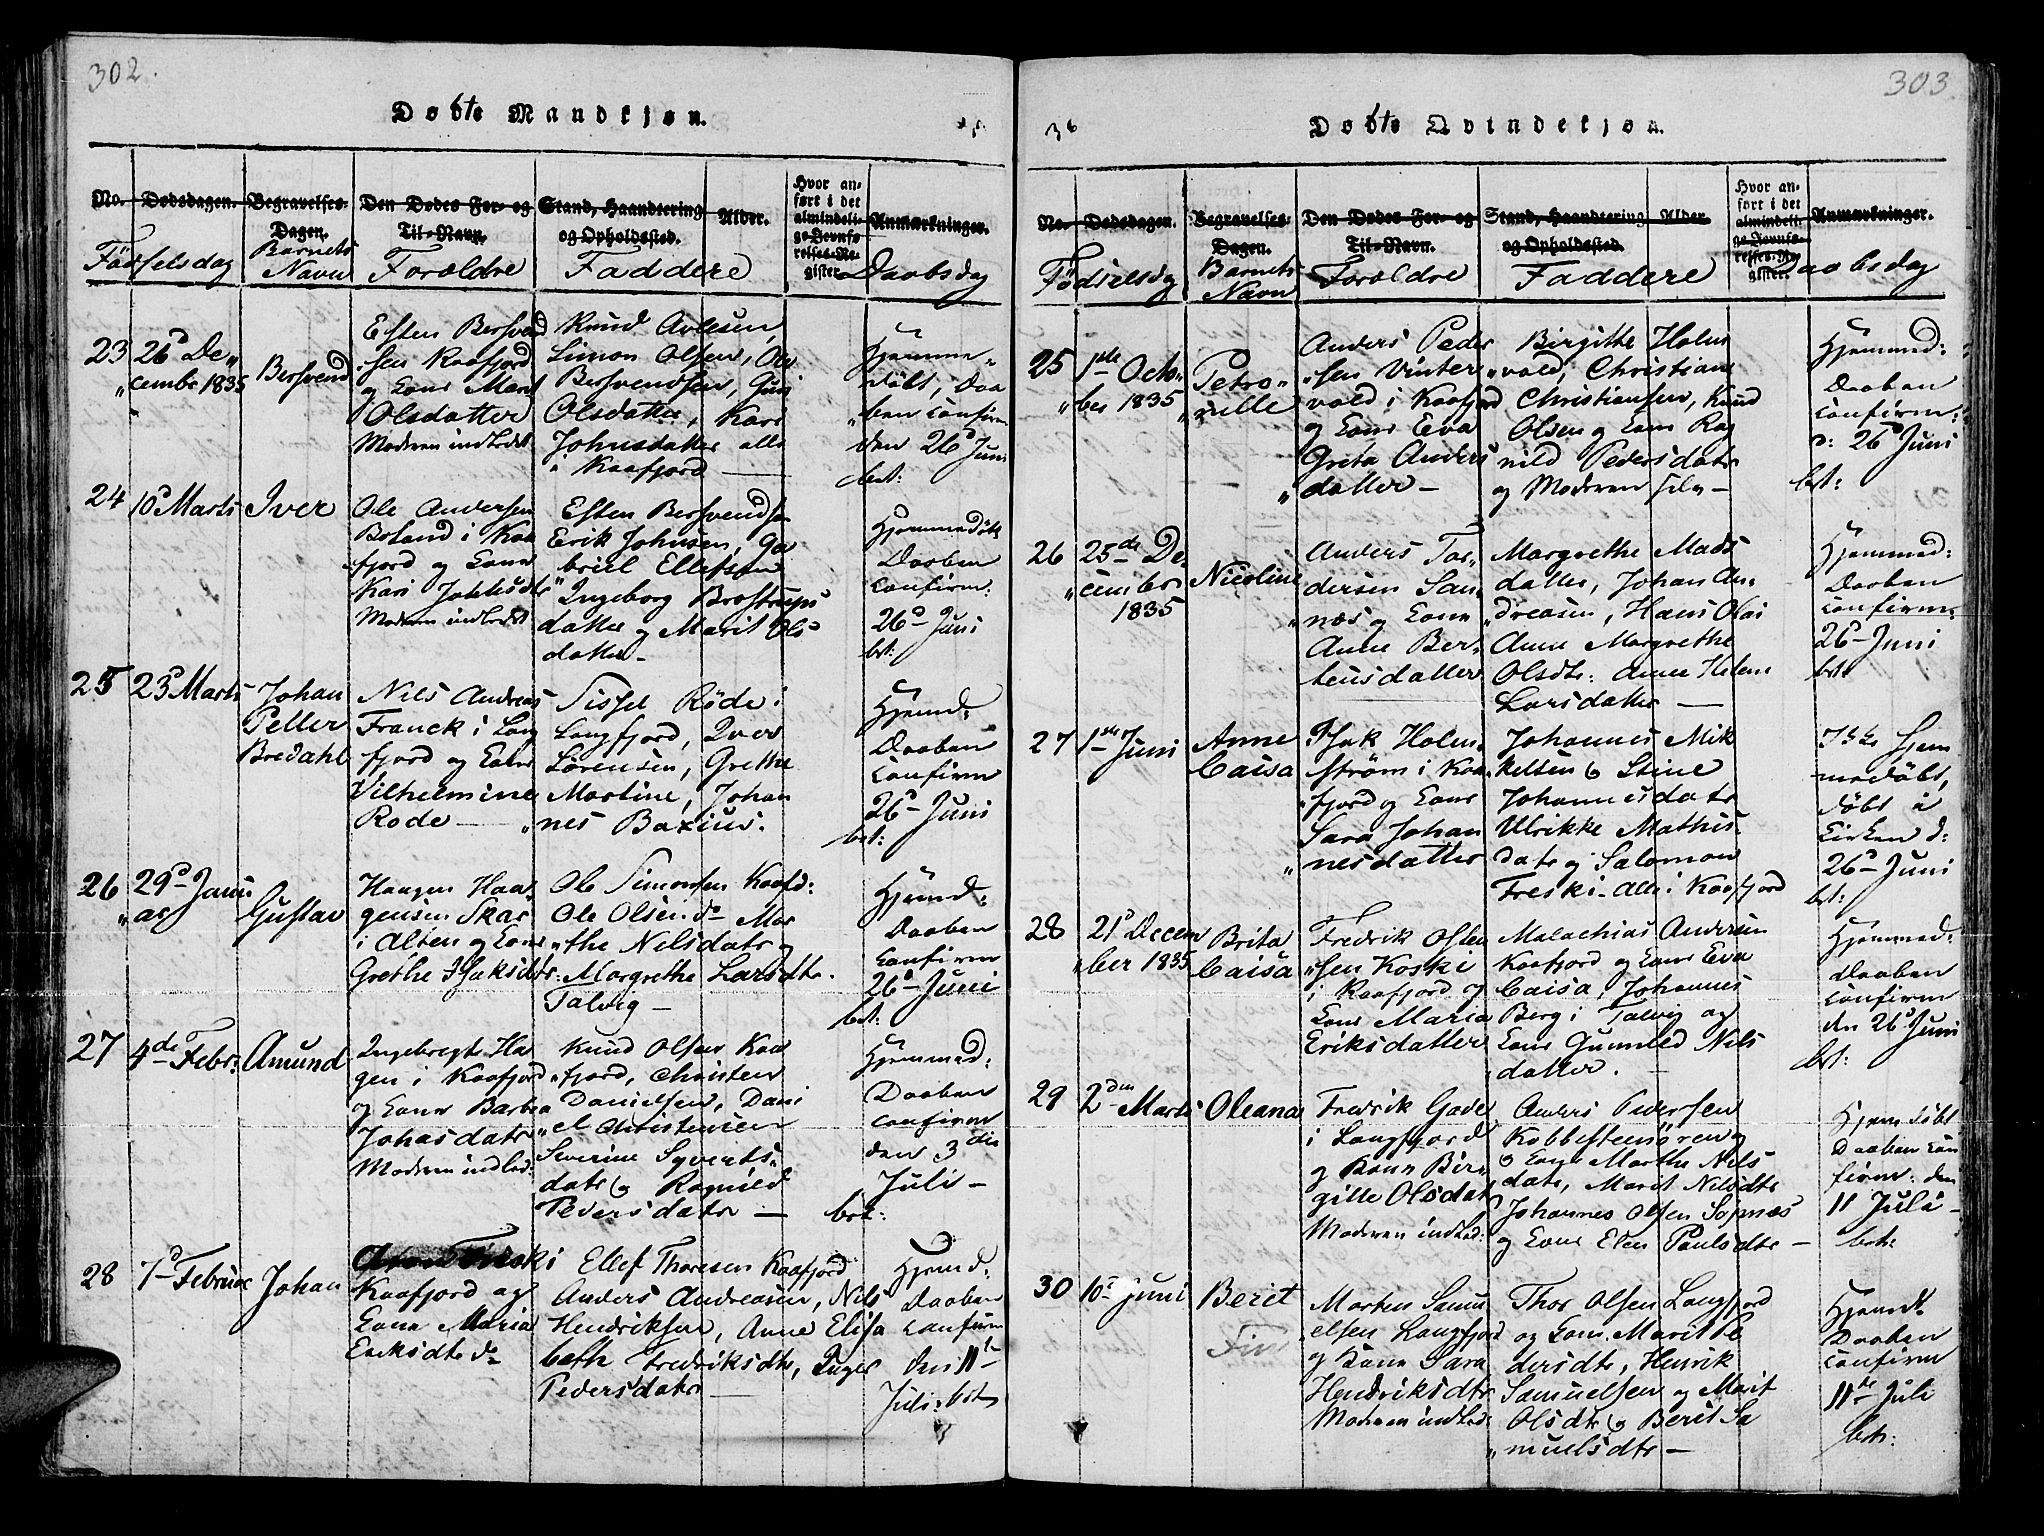 302.
Døbte Mandkjøn.
No.
Dødsdagen.
Begravelses-
Dagen.
Den Dødes For- og
Til-Navn.
Stand, Haandtering
og Opholdssted.
Alder.
Hvor an-
ført i det
almindeli-
ge Jevnfø-
relses-Re-
gister.
Anmærkninger.
Fødselsdag
Barnets
Navn
Forældre
Faddere
Daabsdag
23
26d De„
„cembr 1835
Bersvend
Esten Bersvend
„sen Kaafjord
og Kone Marit
Olsdatter
Moderen indledet
Knud Arlesen,
Simon Olsen, Ole
Bersvendsen, Guri
Olsdatter, Kari
Johnsdatter alle
i Kaafjord —
Hjemme„
døbt, Daa
„ben confirm
den 26d Juni
bet:
24
10d Marts
Iver
Ole Andersen
Boland i Kaa
fjord og Kone
Kari Johnsdtr
Moderen indledet
Esten Bersvendsen
Erik Johnsen, Ga
briel Ellefsen
Ingeborg Brostrups
datter og Marit Ols
datter —
Hjemmedøbt
Daaben
confirm:
26d Juni
bet:
25
23d Marts
Johan
Peller
Bredahl
Nils Andreas
Franck i Lang
fjord og Kone
Vilhelmine
Rode —
Sissel Röde i
Langfjord, Iver
Sörensen, Grethe
Martine, Johan
„nes Baxius.
Hjemd:
Daaben
confirm
26d Juni
bet:
26
29d Janu
„ar
Gustav
Haagen Haa
gensen Skar
i Alten og Kone
Grethe Isaksdtr.
Ole Simonsen Kaafd:
Ole Olsen do Mar
„the Nilsdatr og
Margrethe Larsdtr.
Talvig —
Hjemd:
Daaben
confirm
26d Juni
bet:
27
4de Febr:
Amund
Ingebregt Ha
gen i Kaafjord
og Kone Barbra
Johasdatr
Moderen indled:
Knud Olsen Kaa
„fjord, Christen
Danielsen, Dani
„el Christensen
Severine Syverts„
datr og Ragnild
Pedersdatr —
Hjemmed:
Daaben
confirm
den 3die
Juli —
bet:
28
7d Februar
Johan
Kaafjord og
Kone Maria
Eriksdtr do
Ellef Thoresen Kaafjord
Anders Andreasen, Nils
Hendriksen, Anne Elisa
beth Fredriksdtr, Inger
Pedersdatr —
Hjemd:
Daaben
confirm
den 11te
Juli. bet
303
36
Døbte Qvindekjøn.
No.
Dødsdagen.
Begravelses-
Dagen.
Den Dødes For- og
Til-Navn.
Stand, Haandtering
og Opholdssted.
Alder.
Hvor an-
ført i det
almindeli-
ge Jevnfø-
relses-Re-
gister.
Anmærkninger.
Födselsdg
Barnets
Navn
Forældre
Faddere
Daabsdag
25
1ste Octo„
„ber 1835
Petro„
„nille
Anders Peder
„sen Vinter
vold i Kaafjord
og Kone Eva
Greta Anders
„datter —
Birgithe Holm
„vold, Christian
Christiansen, Knud
Olsen og Kone Rag
nild Pedersdatr
og Moderen selv —
Hjemmed:
Daaben
confirm:
d: 26d Juni
bet:
26
25de De„
„cember
1835
Nicoline
Anders Tor„
dersen San„
næs og Kone
Anne Ber„
teusdatter
Margrethe Mads
datter, Johan An„
„dreasen, Hans Olai
Anne Margrethe
Olsdtr: Anne Helene
Larsdatter —
Hjemmed:
Daaben
confirm
26d Juni
bet:
27
1ste Juni
Anne
Caisa
Isak Holm„
ström i Kaa„
„fjord og Kone
Sara Johan
„nesdatter
Johannes Mik
kelsen og Stine
Johannesdatr
Ulrikke Mathis„
datr og Salomon
Freski. Alle i Kaafjord
Ikke Hjem
medøbt,
døbt i
Kirken d:
26d Juni
bet:
28
21d Decem
„ber 1835
Brita
Caisa
Fredrik Olsen
„sen Koski
i Kaafjord og
Kone Maria
Eriksdatter
Malachias Andersen
Kaafjord og Kone Eva
Caisa, Johannes
Berg i Talvig og
Kone Gunnild Nils
datter.
Hjemmed:
daaben
confirm
den 26d Juni
bet:
29
2den Marts
Oleana
Fredrik Gade
i Langfjord
og Kone Bir„
gitte Olsdatr
Moderen indled:
Anders Pedersen
Kobbesteenören og
Kone Marthe Nils
datr, Marit Nilsdtr
Johannes Olsen Sopnæs
og Kone Elen Paulsdtr —
Hjemdöbt
Daaben con
firm: den
11 Juli —
bet:
30
10d Juni
Beret
Fin
Morten Samu
elsen Langfjord
og Kone Sara
Hendriksdtr
Moderen indled:
Thor Olsen Langfjord
og Kone Marit Pe
dersdtr, Henrik
Samuelsen og Marit
Olsdtr og Berit Sa
„muelsdtr —
Hjemd:
Daaben
confirm
11te Juli
bet: